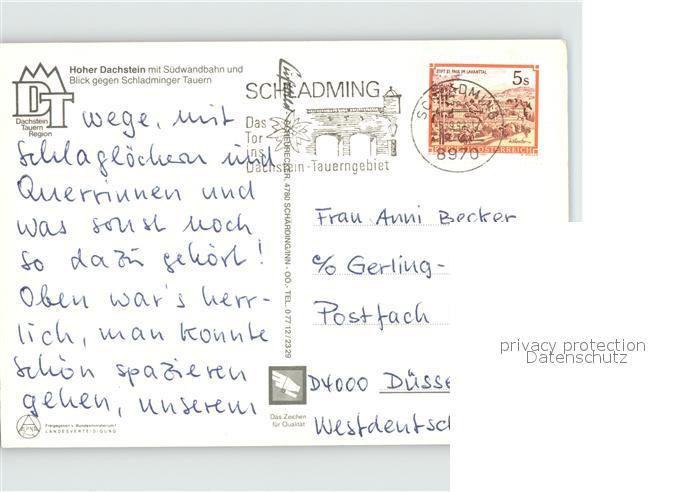 Hoher Dachstein mit Südwandbahn und
Blick gegen Schladminger Tauern
DT
Dachstein
Tauern
Region
wege, mit
Schlaglöchern und
Querrinnen und
was sonst noch
so dazu gehört!
Oben war's herr-
lich, man konnte
schön spazieren
gehen, unserem
Freigegeben v. Bundesministerium f.
LANDESVERTEIDIGUNG
SCHLADMING
Das
Tor
ins
Dachstein-Tauerngebiet
4780 SCHÄRDING/INN - OÖ. - TEL. 0 77 12 / 23 29
Das Zeichen
für Qualität
STIFT ST. PAUL IM LAVANTTAL
5 s
REPUBLIK ÖSTERREICH
SCHLADMING
8970
Frau Anni Becker
c/o Gerling-
Postfach
D4000 Düsse
Westdeutsch
privacy protection
Datenschutz